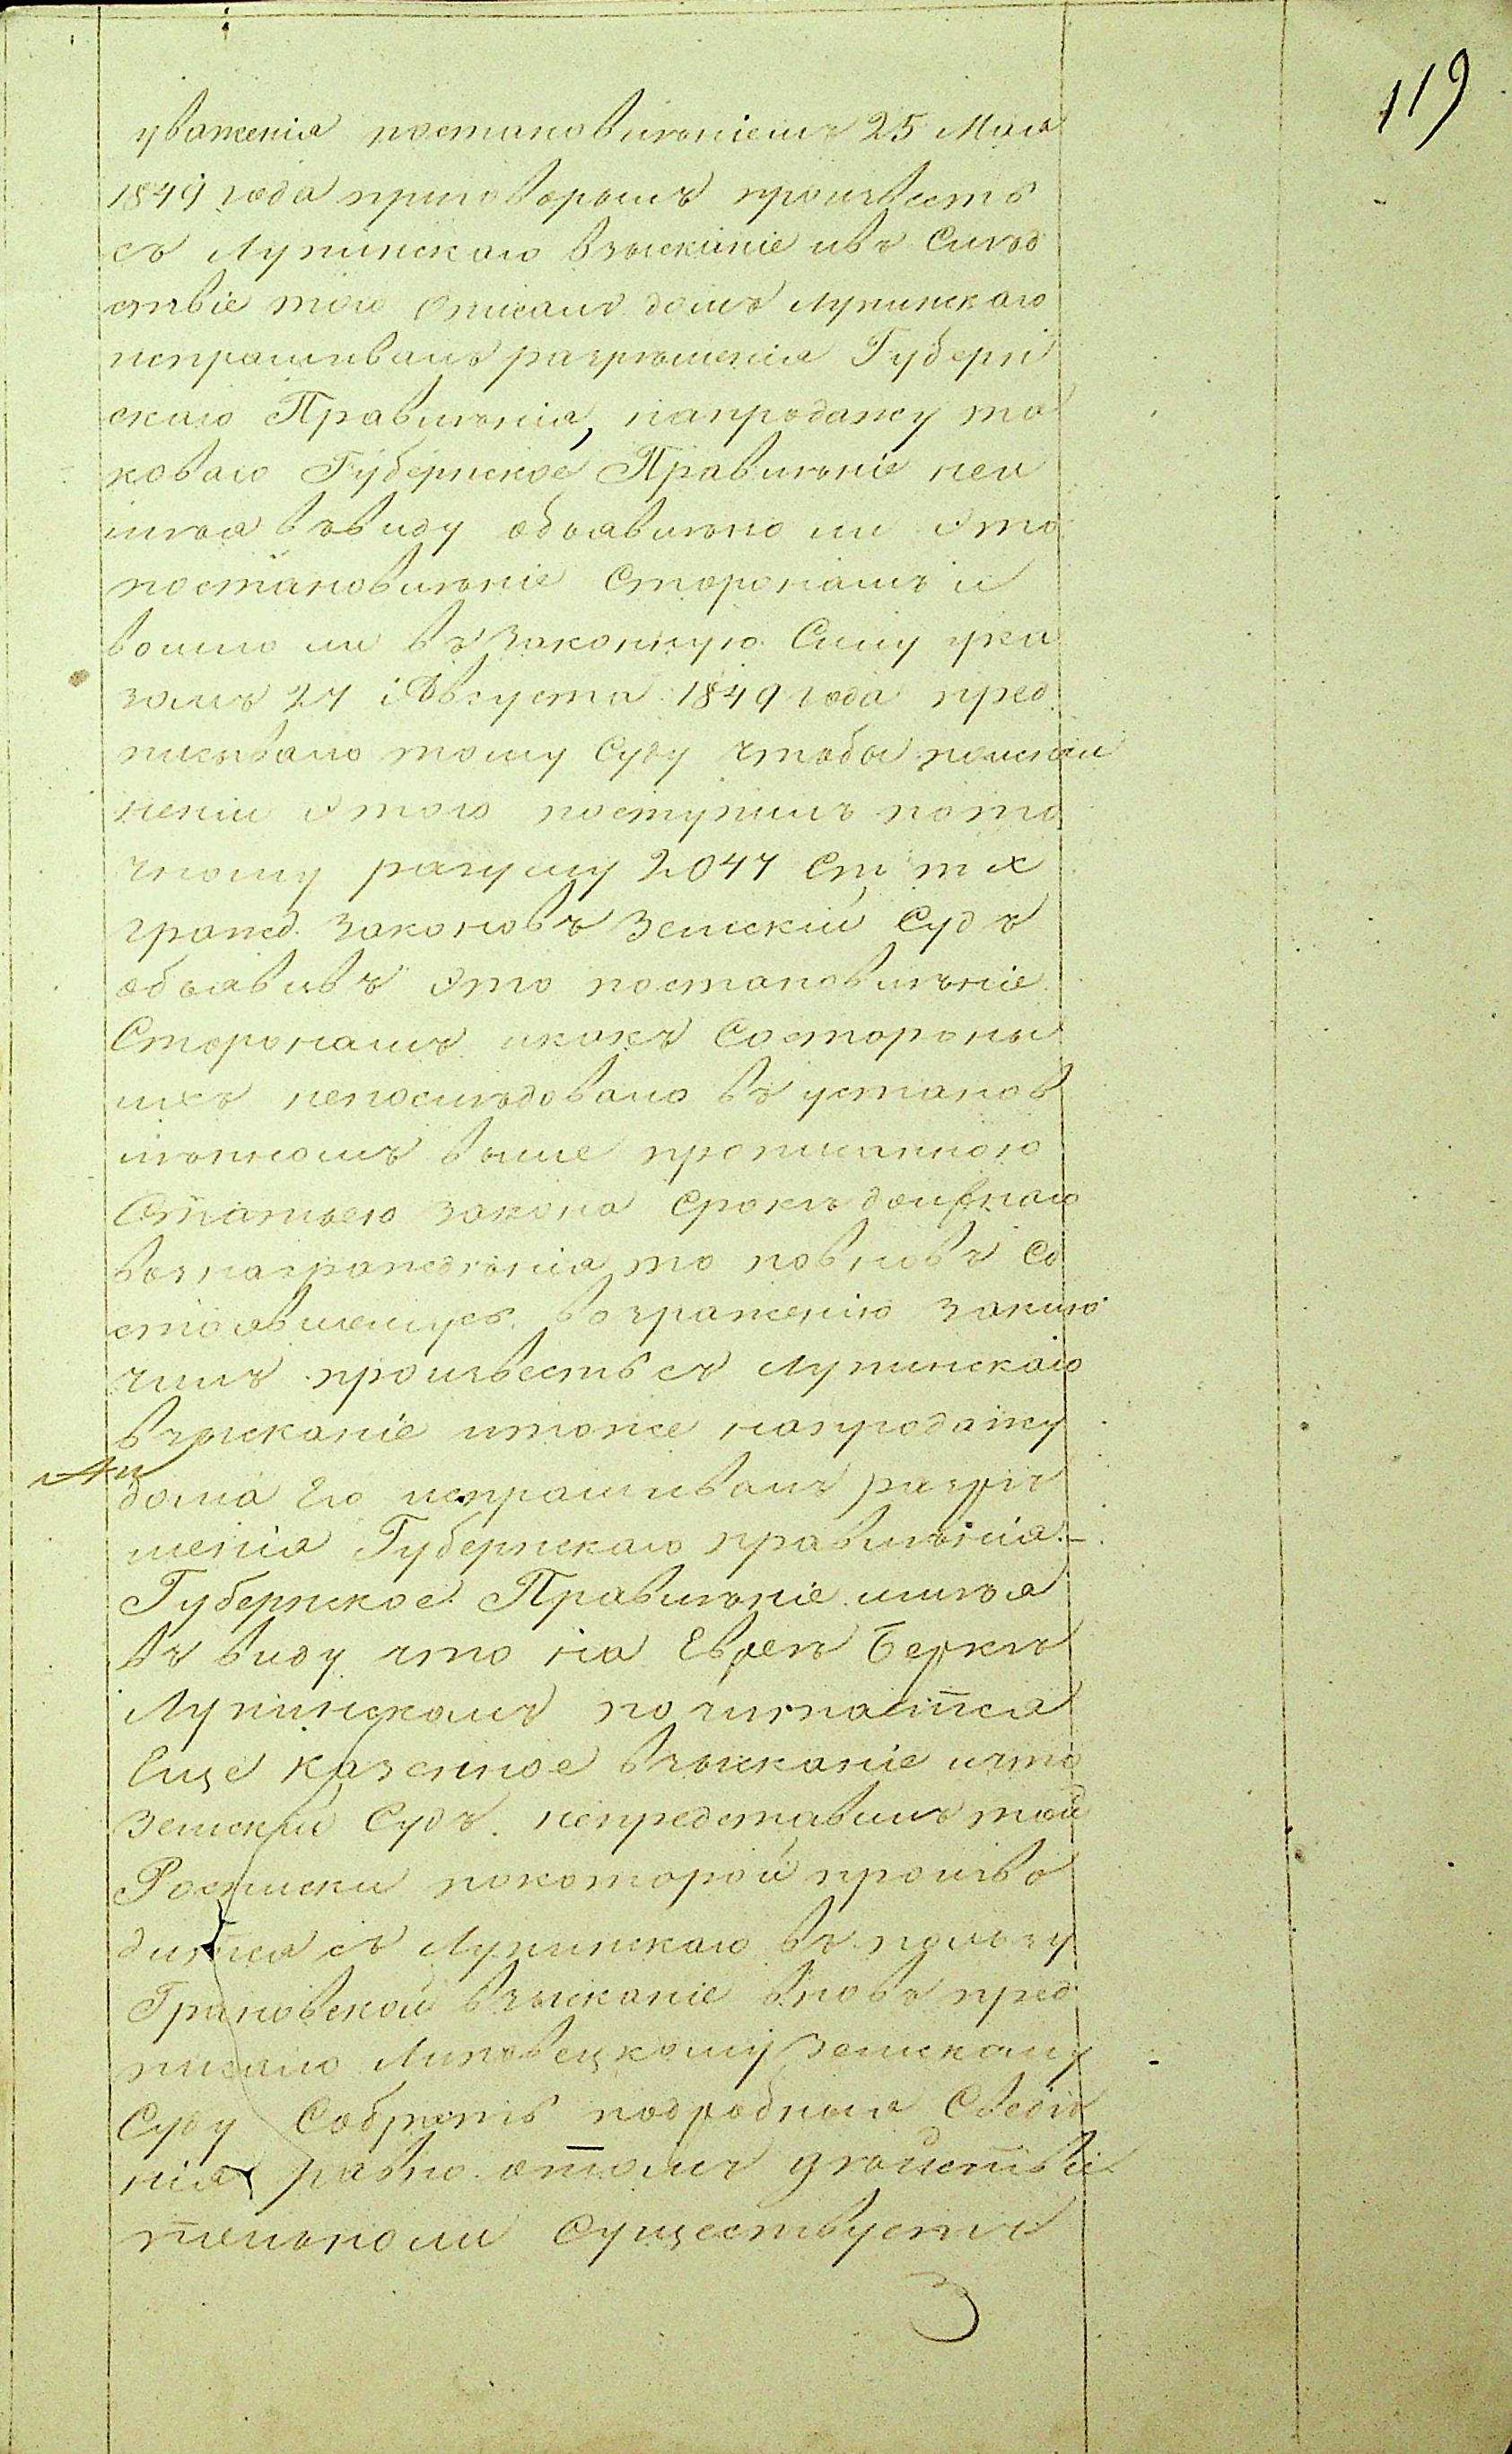 119
уваженія постановленіемъ 25 Мая
1849 года приговорилъ произвесть
съ Лупинскаго взысканіе ивъ Слѣд
ствіе того описалъ домъ Лупинскаго
испрашивалъ разрѣшенія Губерн
скаго Правленія, напродажу та
коваго Губернское Правленіе неи
мѣя ввиду объявлено ли это
постановленіе Сторонамъ и
вошло ли въ законную Силу ука
зомъ 27 Августа 1849 года пред
писывало тому Суду чтобы
неніи этого поступилъ пото
чному разуму 2047 Ст т х
гражд. законовъ Земскій Судъ
объявивъ это постановленіе
Сторонамъ икакъ Состороны
ихъ непослѣдовало въ установ
ленномъ выше прописанною
Статьею закона Срокѣ
вознагражденія то вновь Со
стоявшемуся возраженію заклю
чилъ произвесть съ Лупинскаго
взысканіе итоже напродажу
дома его испрашивалъ разрѣ
шенія Губернскаго правленія.-
Губернское Правленіе имѣя
въ виду что на Евреѣ Беркѣ
Лупинскомъ почитается
Еще казенное взысканіе ичто
Земскій Судъ непредставилъ той
Росписки покоторой произво
дится съ Лупинскаго въ пользу
Грановской взысканіе вновь пред
писало Липовецкому Земскому
Суду Собрать подробныя Свѣдѣ
нія равно отомъ дѣйстви
тельноли Существуетъ